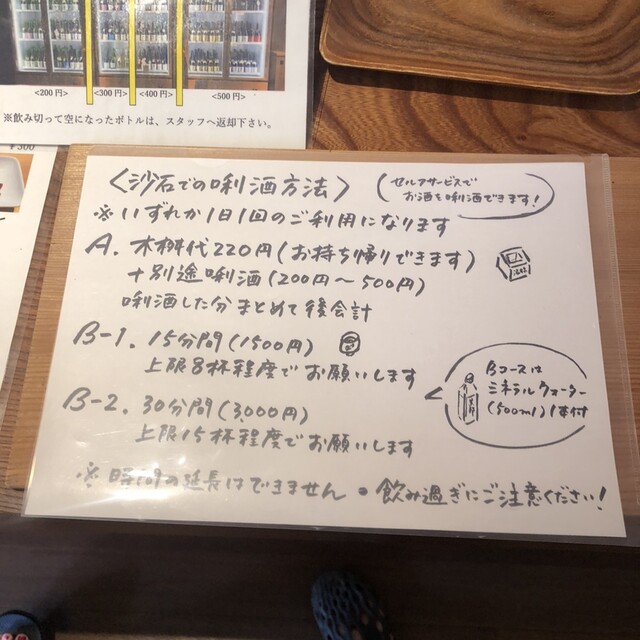 <200円>
<300円>
<400円>
<500円>
※飲み切って空になったボトルは、スタッフへ返却下さい。
¥300
〈沙石での唎酒方法〉
(セルフサービスで
お酒を唎酒できます!)
※いずれか1日1回のご利用になります
A. 木桝代220円(お持ち帰りできます)
+別途唎酒(200円〜500円)
唎酒した分まとめて後会計
B-1. 15分間(1500円)
上限8杯程度でお願いします
B-2. 30分間(3,000円)
上限15杯程度でお願いします
Bコースは
ミネラルウォーター
(500ml)1本付
※時間の延長はできません・飲み過ぎにご注意ください!